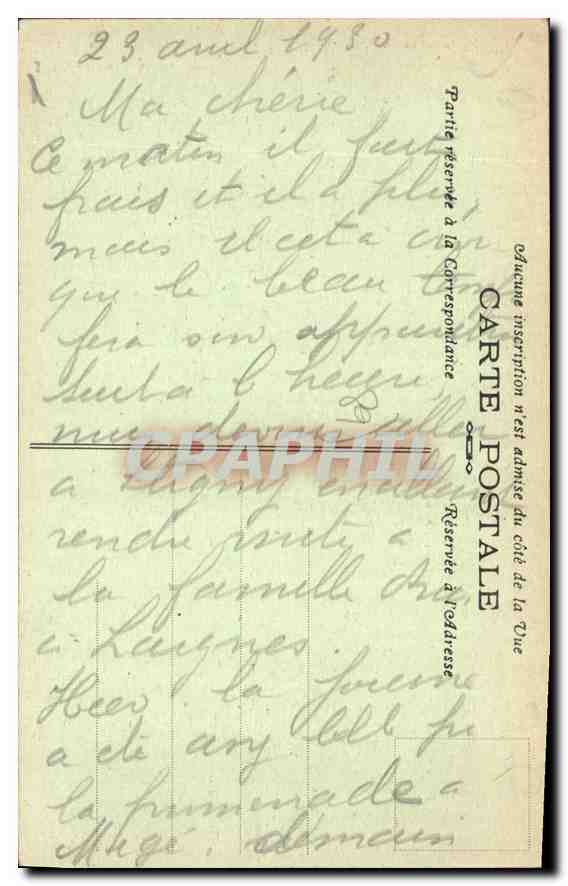 23 avril 1930
Ma chérie
Ce matin il fait
frais et il a plu,
mais il est à
que le beau temps
fera son
tout à l'heure,
nous devons aller
a
rendre visite a
la famille
a Laignes.
Hier la journée
a été assez belle
la promenade a
demain
CPARAMA
Partie réservée à la Correspondance
Réservée à l'Adresse
CARTE POSTALE
Aucune inscription n'est admise du côté de la Vue